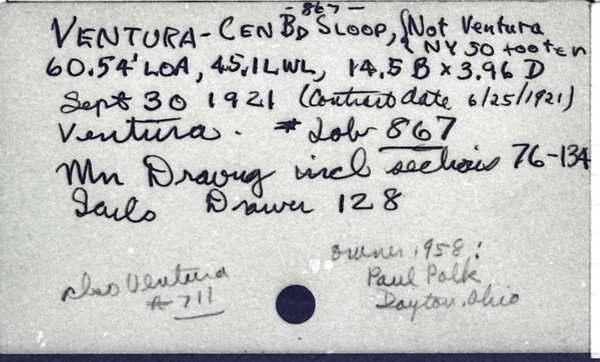 -867-
VENTURA - CEN BD SLOOP, {Not Ventura
{NY 50 footer
60.54' LOA, 45.1 LWL, 14.5 B x 3.96 D
Sept 30 1921 (Contract date 6/25/1921)
Ventura. # Job 867
Mn Drawng incl sections 76-134
Sails Drawer 128
owner 1958:
also Ventura
# 711
Paul Polk
Dayton, Ohio